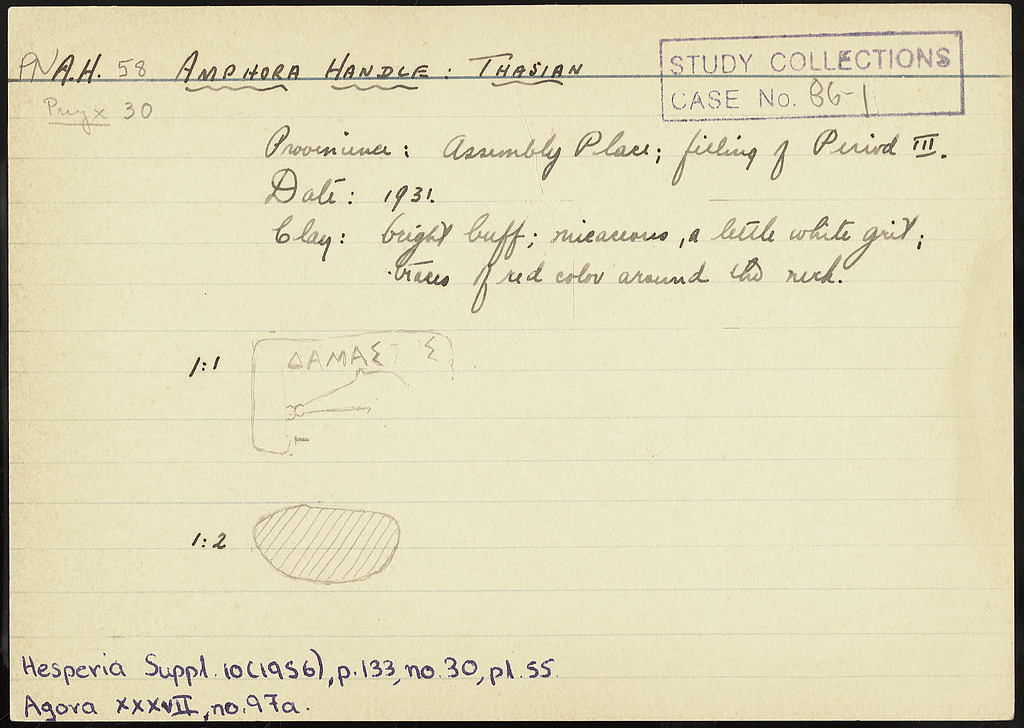 PN A.H. 58 AMPHORA HANDLE : THASIAN
STUDY COLLECTIONS
CASE No. 86-1
Pnyx 30
Provinience : Assembly Place; filling of Period III.
Date : 1931.
Clay : bright buff; micaceous, a little white grit;
traces of red color around the neck.
1:1
ΔΑΜΑΣΤ Σ
Τ
1:2
Hesperia Suppl. 10 (1956), p. 133, no. 30, pl. 55.
Agora XXXVII, no. 97a.